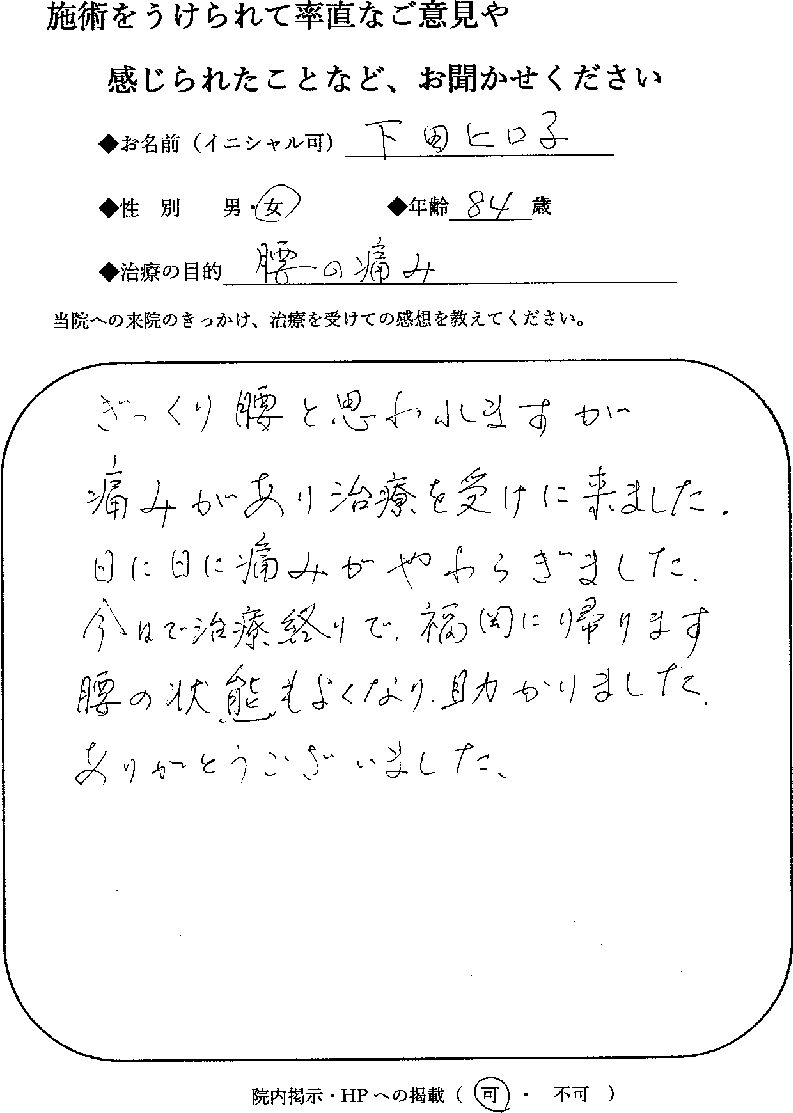 施術をうけられて率直なご意見や
感じられたことなど、お聞かせください
◆お名前（イニシャル可） 下田ヒロ子
◆性 別 男・女 ◆年齢 84 歳
◆治療の目的 腰の痛み
当院への来院のきっかけ、治療を受けての感想を教えてください。
ぎっくり腰と思われますが
痛みがあり治療を受けに来ました.
日に日に痛みがやわらぎました.
今日で治療終りで、福岡に帰ります
腰の状態もよくなり、助かりました.
ありがとうございました、
院内掲示・HPへの掲載（ 可 ・ 不可 ）